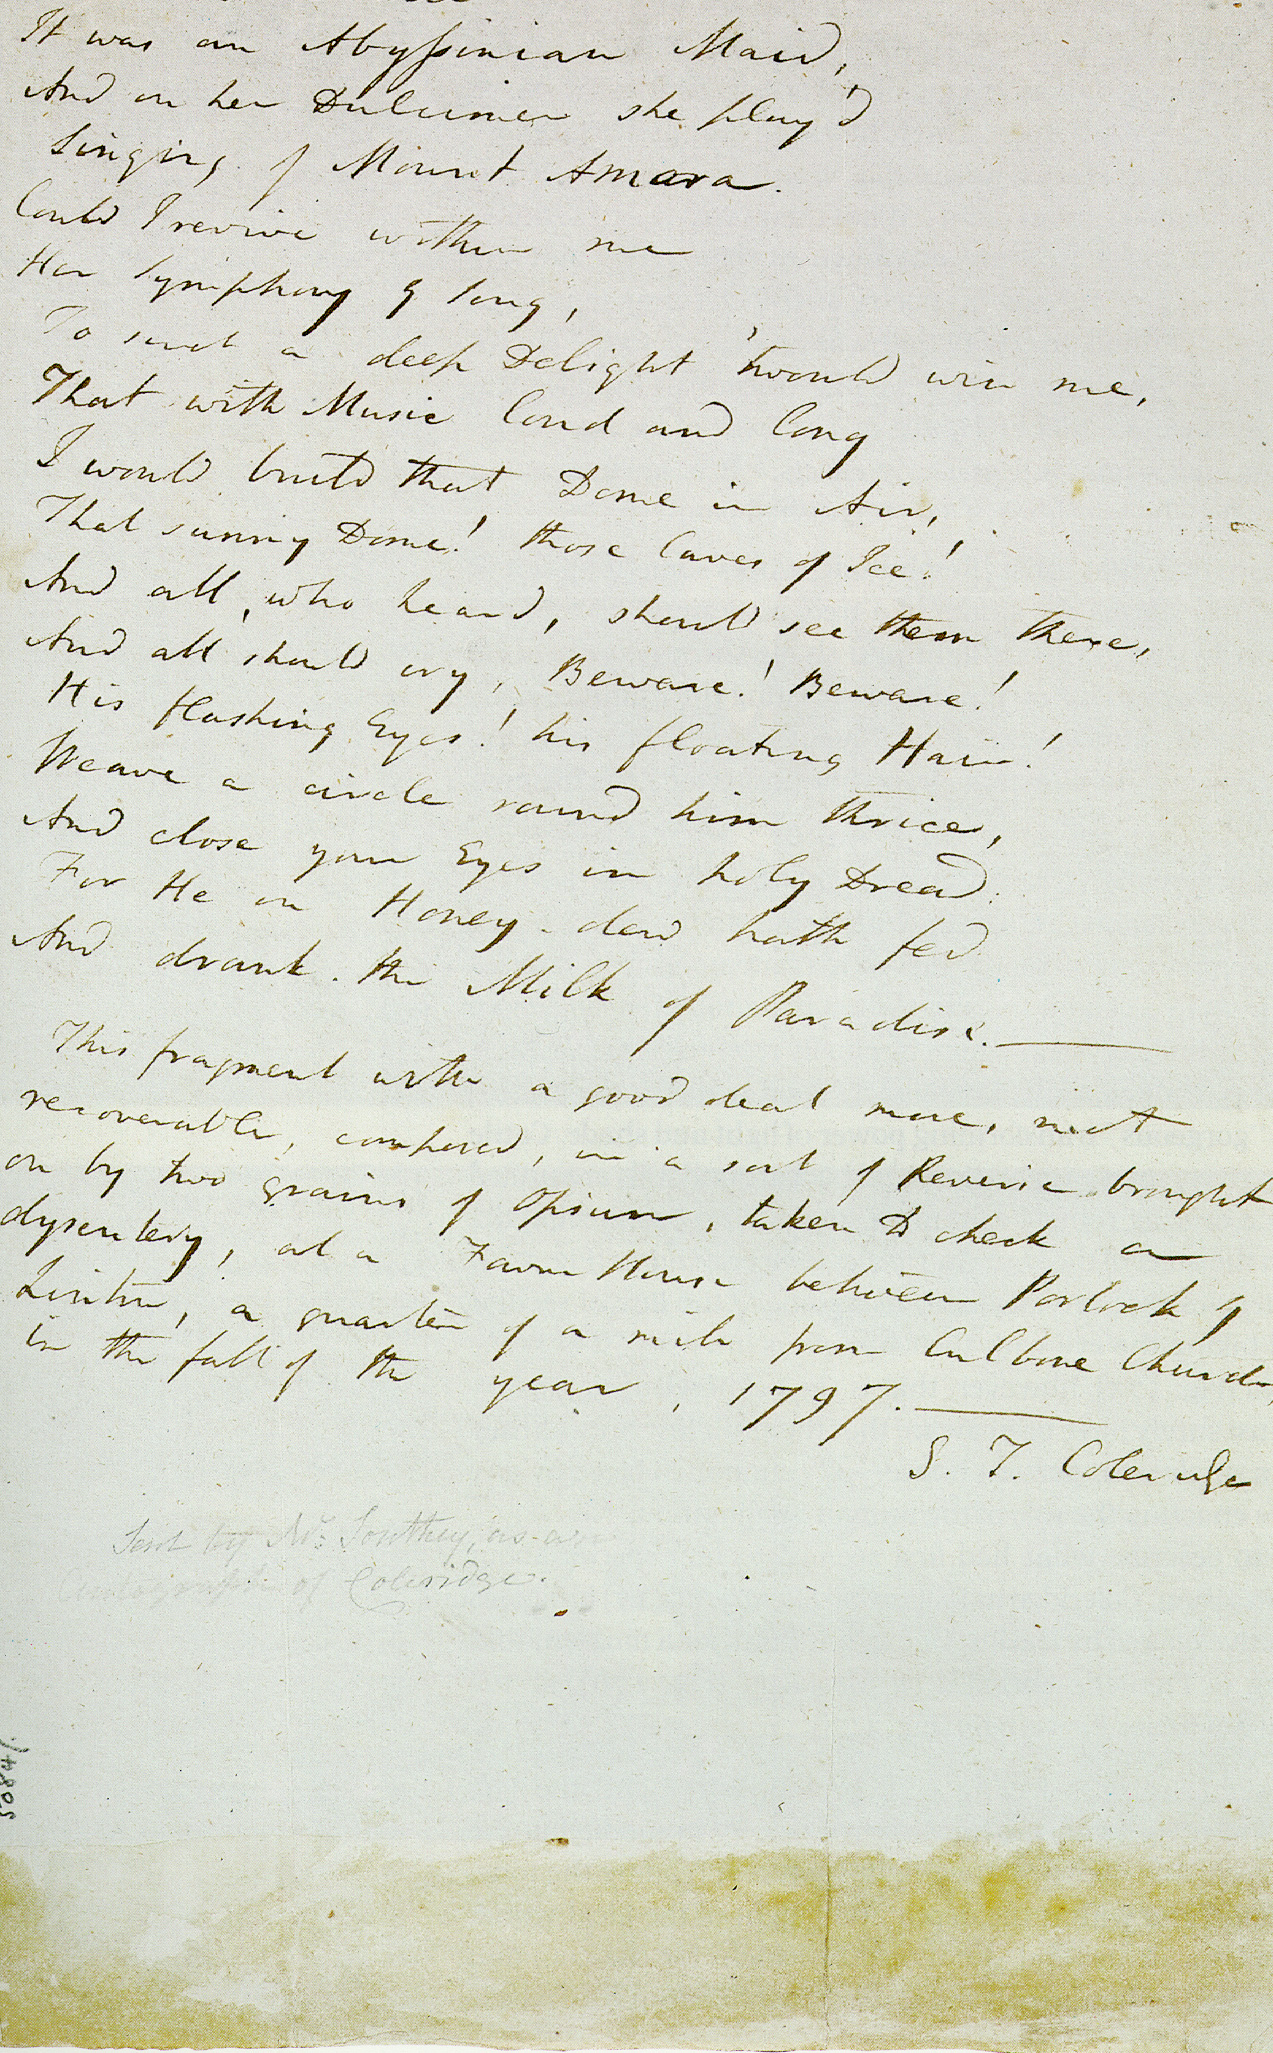 It was an Abyſsinian Maid,
And on her Dulcimer she play'd
Singing of Mount Amara.
Could I revive within me
Her Symphony & Song,
To such a deep Delight 'twould win me,
That with Music loud and long
I would build that Dome in Air,
That sunny Dome! those Caves of Ice!
And all, who heard, should see them there,
And all should cry, Beware! Beware!
His flashing Eyes! his floating Hair!
Weave a circle round him thrice,
And close your Eyes in holy Dread:
For He on Honey-dew hath fed
And drank the Milk of Paradise.—
This fragment with a good deal more, not
recoverable, composed, in a sort of Reverie brought
on by two grains of Opium, taken to check a
dysentery, at a Farm House between Porlock &
Linton, a quarter of a mile from Culbone Church,
in the fall of the year, 1797.—
S. T. Coleridge
Sent by Mr. Southey, as an
Autograph of Coleridge.
50847.